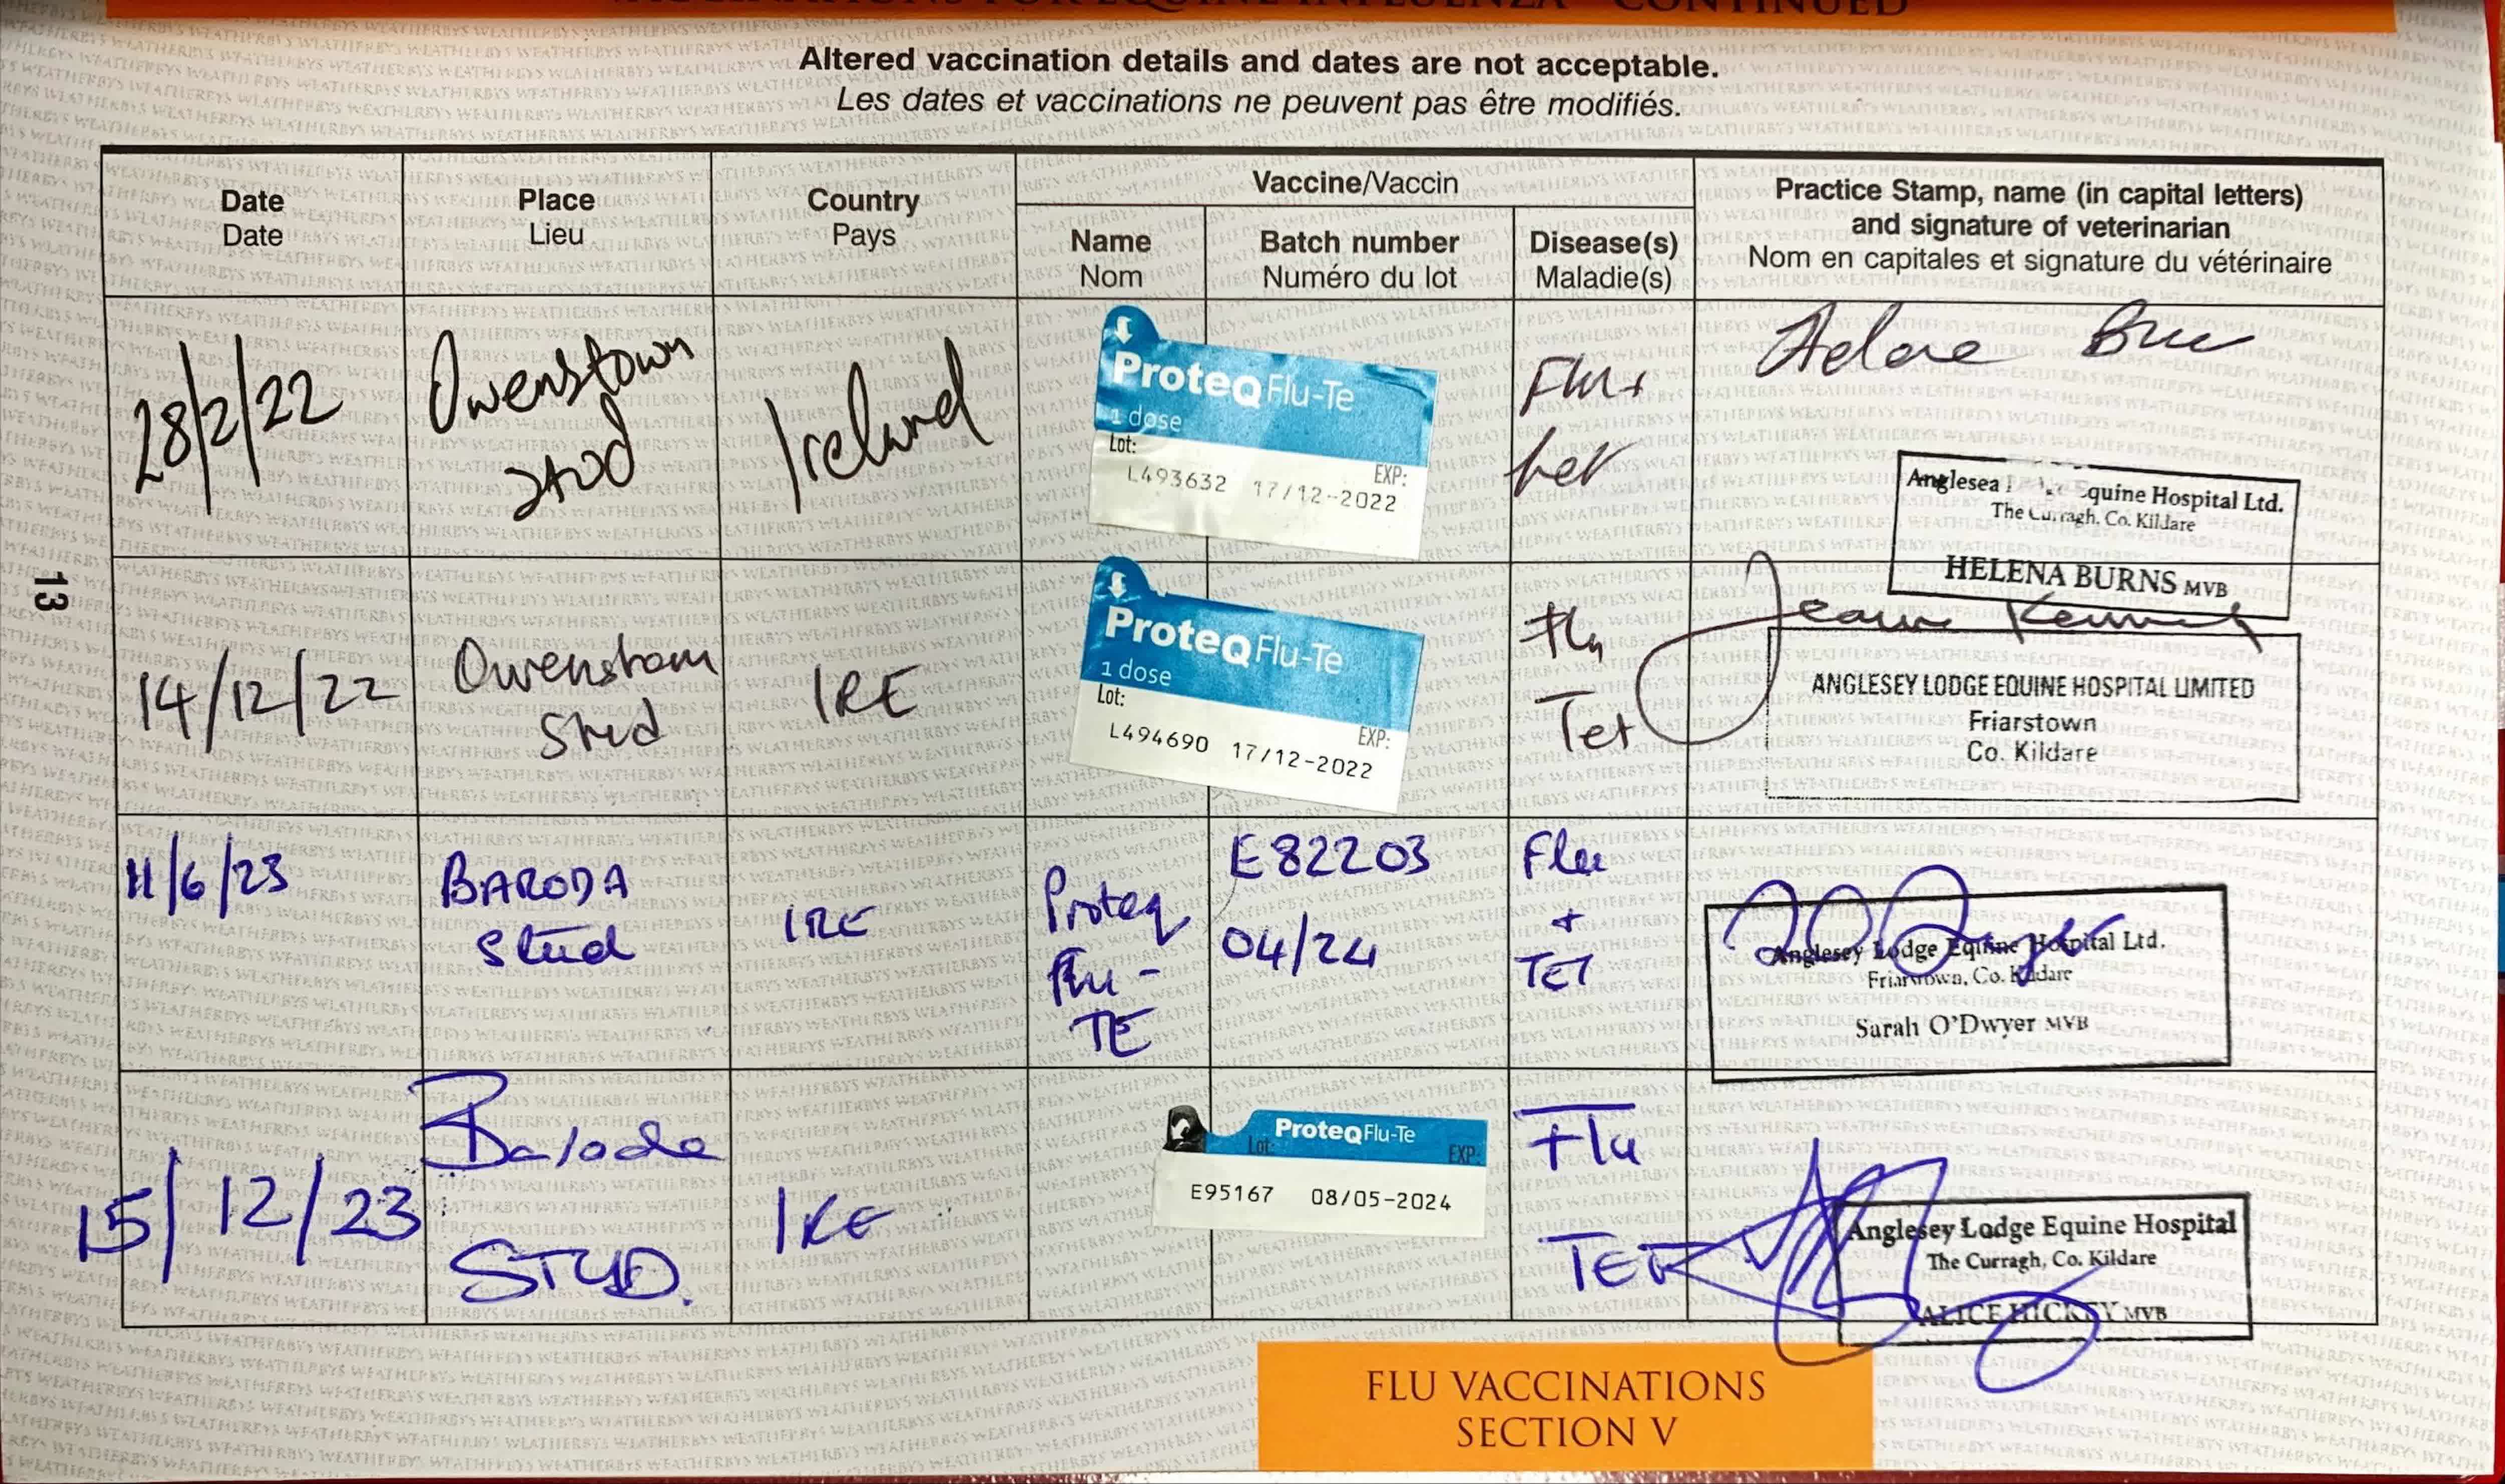 VACCINATIONS FOR EQUINE INFLUENZA - CONTINUED
Altered vaccination details and dates are not acceptable.
Les dates et vaccinations ne peuvent pas être modifiés.
Date
Date
Place
Lieu
Country
Pays
Vaccine/Vaccin
Name
Nom
Batch number
Numéro du lot
Disease(s)
Maladie(s)
Practice Stamp, name (in capital letters)
and signature of veterinarian
Nom en capitales et signature du vétérinaire
28/2/22
Owenstown
Stud
Ireland
ProteqFlu-Te
1 dose
Lot:
EXP:
L493632 17/12-2022
Flu +
tet
Anglesea quine Hospital Ltd.
The Curragh, Co. Kildare
HELENA BURNS MVB
13
14/12/22
Owenstown
Stud
IRE
ProteqFlu-Te
1 dose
Lot:
EXP:
L494690 17/12-2022
Flu
Tet
ANGLESEY LODGE EQUINE HOSPITAL LIMITED
Friarstown
Co. Kildare
11/6/23
BARODA
Stud
IRE
Proteq
Flu -
TE
E82203
04/24
Flu
+
TET
Anglesey Lodge Equine Hospital Ltd.
Friarstown, Co. Kildare
Sarah O'Dwyer MVB
15/12/23
Baroda
STUD.
IRE
ProteqFlu-Te
Lot: EXP:
E95167 08/05-2024
Flu
TET
Anglesey Lodge Equine Hospital
The Curragh, Co. Kildare
ALICE HICKEY MVB
FLU VACCINATIONS
SECTION V